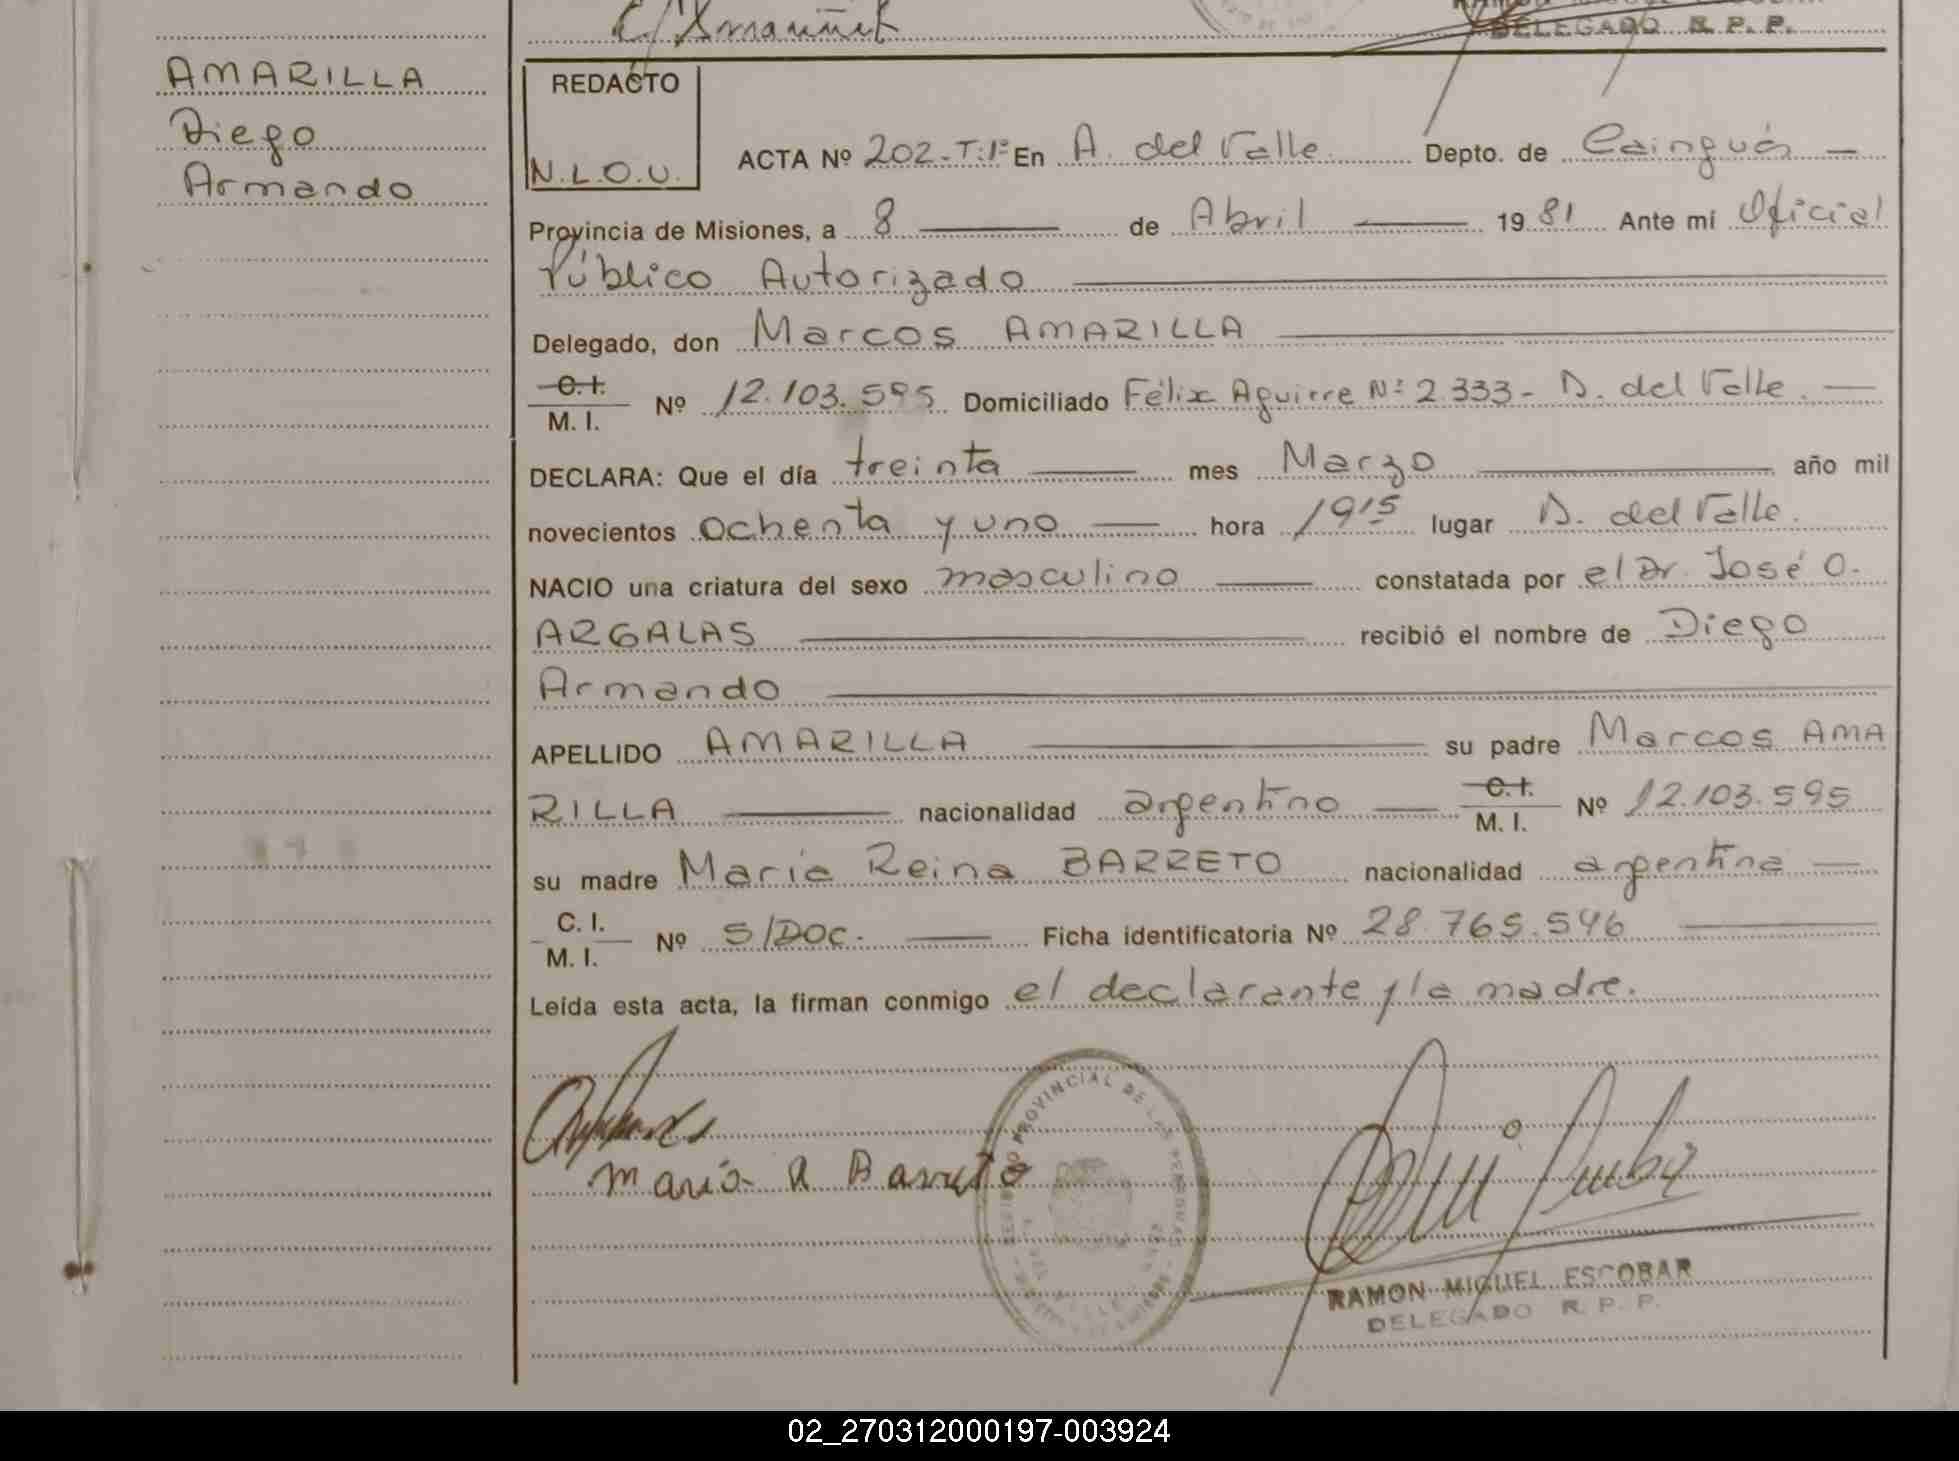 DELEGADO R. P. P.
AMARILLA
Diego
Armando
REDACTO
N.L.O.U.
ACTA Nº 202-T:1º En A. del Valle Depto. de Cainguás
Provincia de Misiones, a 8 de Abril 1981 Ante mi Oficial
Público Autorizado
Delegado, don Marcos AMARILLA
C.I. M. I. Nº 12.103.595 Domiciliado Félix Aguirre Nº 2.333- A. del Valle.
DECLARA: Que el día treinta mes Marzo año mil
novecientos ochenta y uno hora 19¹⁵ lugar A. del Valle.
NACIO una criatura del sexo masculino constatada por el Dr. José O.
ARGALAS recibió el nombre de Diego
Armando
APELLIDO AMARILLA su padre Marcos AMA
RILLA nacionalidad argentino C.I. M. I. Nº 12.103.595
su madre María Reina BARRETO nacionalidad argentina
C. I. M. I. Nº S/DOC. Ficha identificatoria Nº 28.765.546
Leída esta acta, la firman conmigo el declarante y la madre.
María R Barreto
PROVINCIAL DE LAS PERSONAS
RAMON MIGUEL ESCOBAR
DELEGADO R. P. P.
02_270312000197-003924